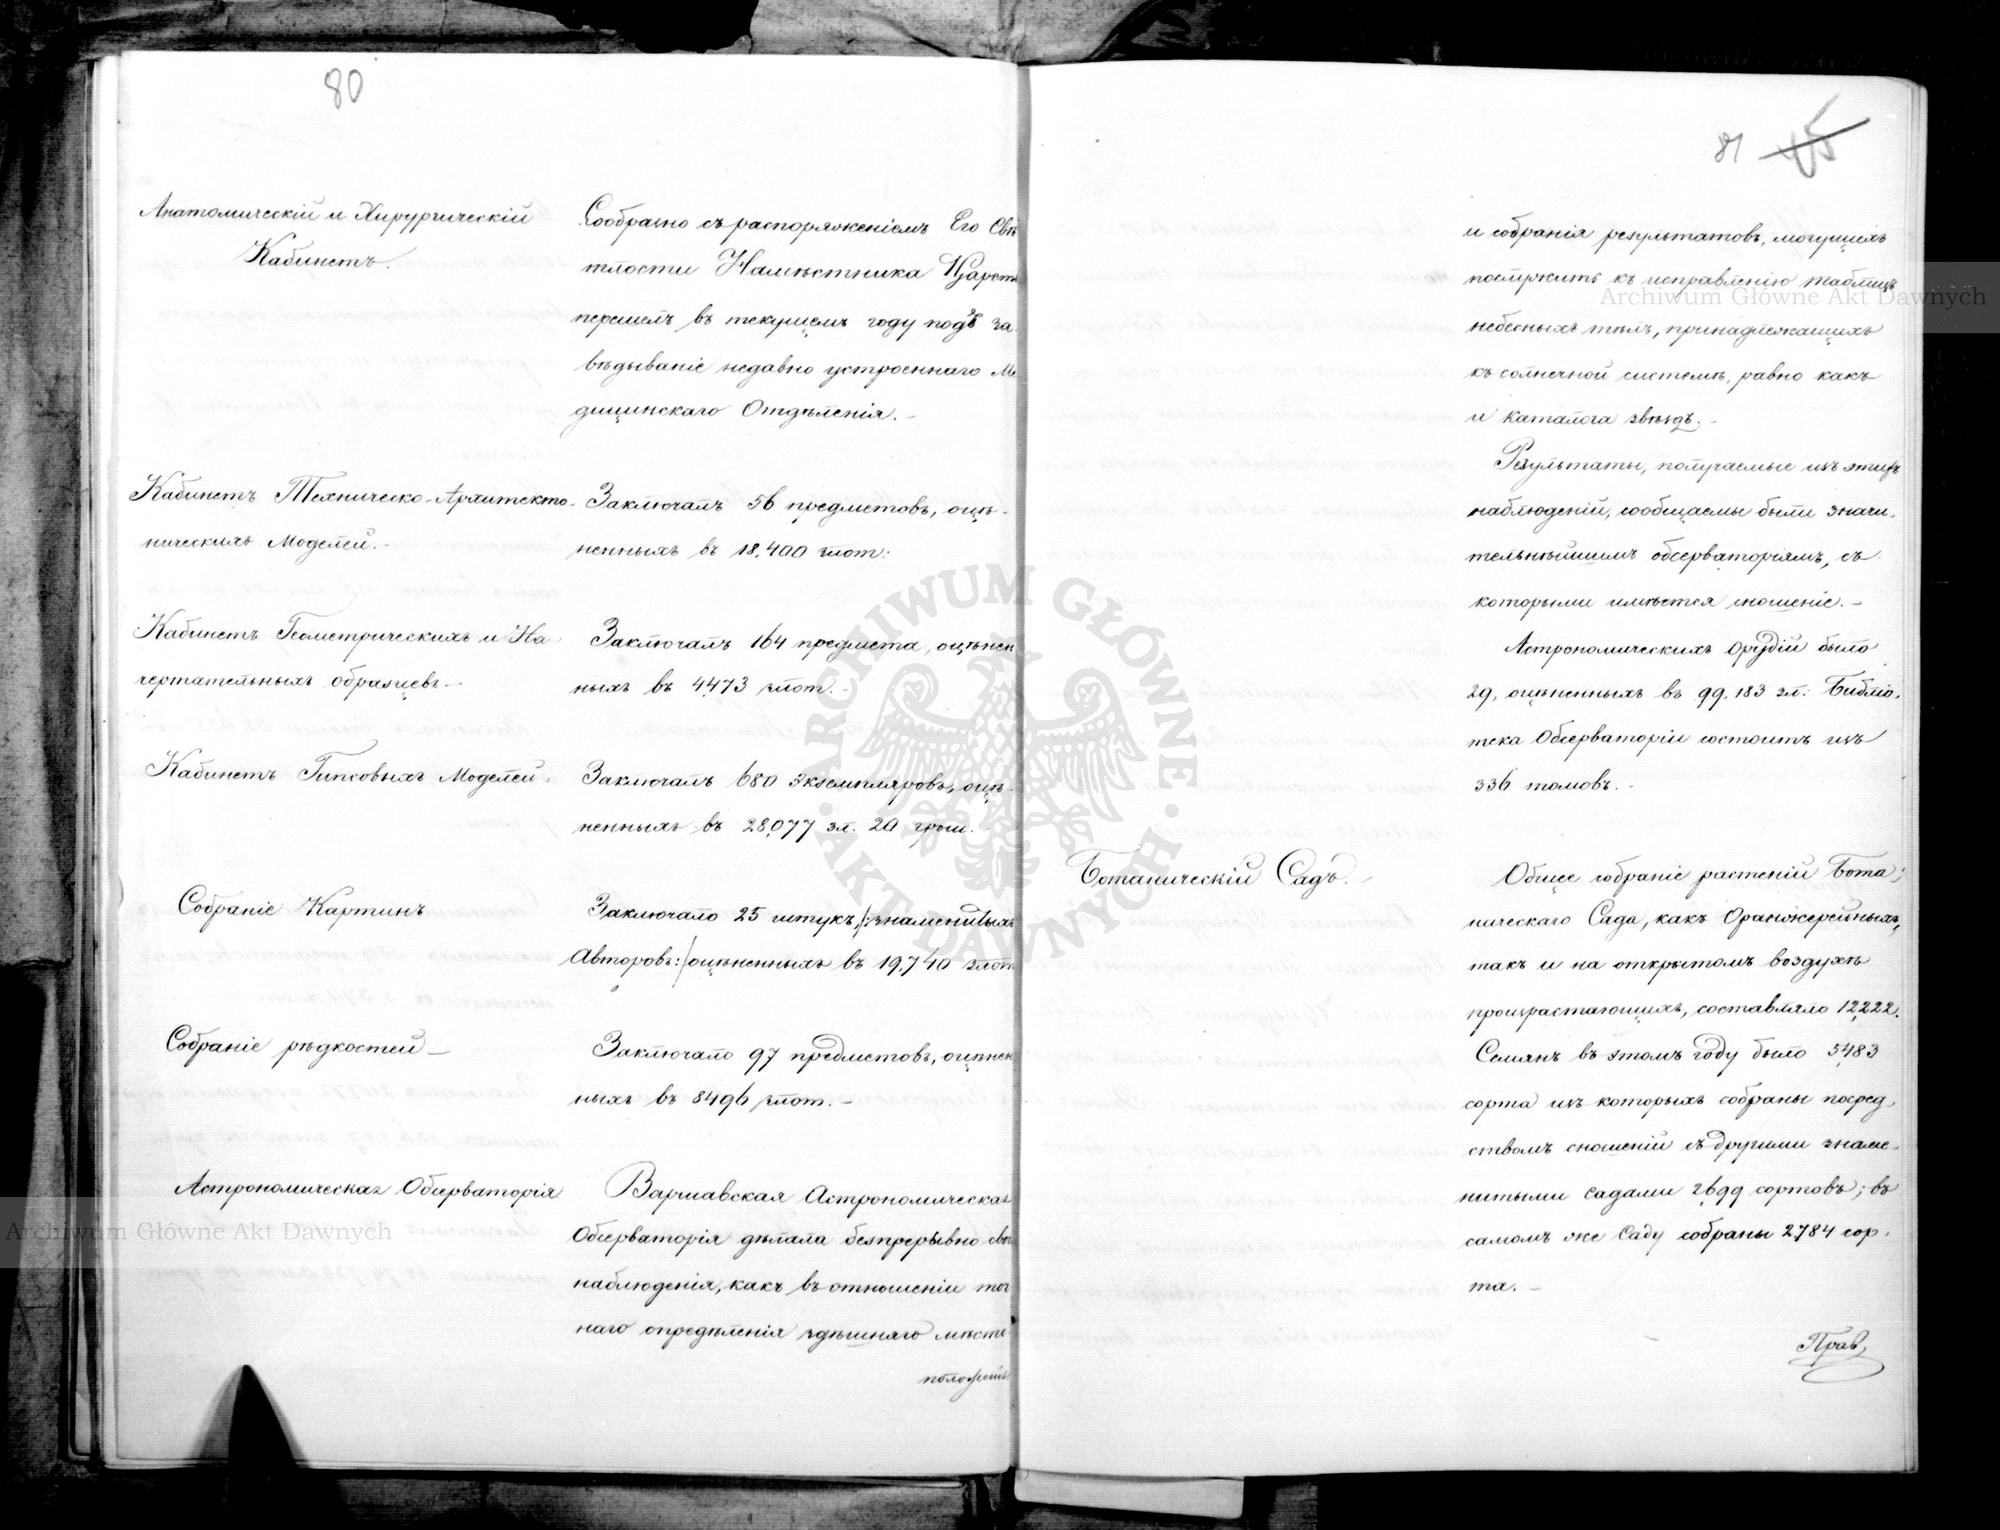 80
Анатомическій и Хирургическій
Кабинетъ.
Сообразно съ распоряженіемъ Его Свѣ
тлости Намѣстника Царст
перешелъ въ текущемъ году подъ за
вѣдываніе недавно устроеннаго Ме
дицинскаго Отдѣленія.-
Кабинетъ Техническо-Архитекто-
ническихъ Моделей.-
Заключалъ 56 предметовъ, оцѣ-
ненныхъ въ 18,400 злот:
Кабинетъ Геометрическихъ и На-
чертательныхъ образцевъ-
Заключалъ 164 предмета, оцѣнен
ныхъ въ 4473 злот.-
Кабинетъ Гипсовыхъ Моделей.
Заключалъ 680 экземпляровъ, оцѣ-
ненныхъ въ 28,077 зл. 20 грош.-
Собраніе Картинъ
Заключало 25 штукъ, /:знаменитыхъ
Авторовъ:/ оцѣненныхъ въ 19,740 злот
Собраніе рѣдкостей-
Заключало 97 предметовъ, оцѣнен
ныхъ въ 8496 злот.-
Астрономическая Обсерваторія
Варшавская Астрономическая
Обсерваторія дѣлала безпрерывно сво
наблюденія, какъ въ отношеніи точ
наго опредѣленія здѣшняго мѣсто
положенія
81 45
и собранія результатовъ, могущихъ
послужить къ исправленію таблицъ
небесныхъ тѣлъ, принадлежащихъ
къ солнечной системѣ, равно какъ
и каталога звѣздъ.-
Результаты, получаемые изъ этихъ
наблюденій, сообщаемы были значи-
тельнѣйшимъ обсерваторіямъ, съ
которыми имѣется сношеніе.-
Астрономическихъ орудій было
29, оцѣненныхъ въ 99,183 зл: Библіо-
тека Обсерваторіи состоитъ изъ
336 томовъ.-
Ботаническій Садъ.-
Общее собраніе растеній Бота-
ническаго Сада, какъ Оранжерейныхъ,
такъ и на открытомъ воздухѣ
произрастающихъ, составляло 12,222.
Семянъ въ этомъ году было 5,483
сорта изъ которыхъ собраны посред-
ствомъ сношеній съ другими знаме-
нитыми садами 2,699 сортовъ; въ
самомъ же Саду собраны 2,784 сор-
та.-
Прав,
Archiwum Główne Akt Dawnych
Archiwum Główne Akt Dawnych
ARCHIWUM GŁÓWNE · AKT DAWNYCH ·